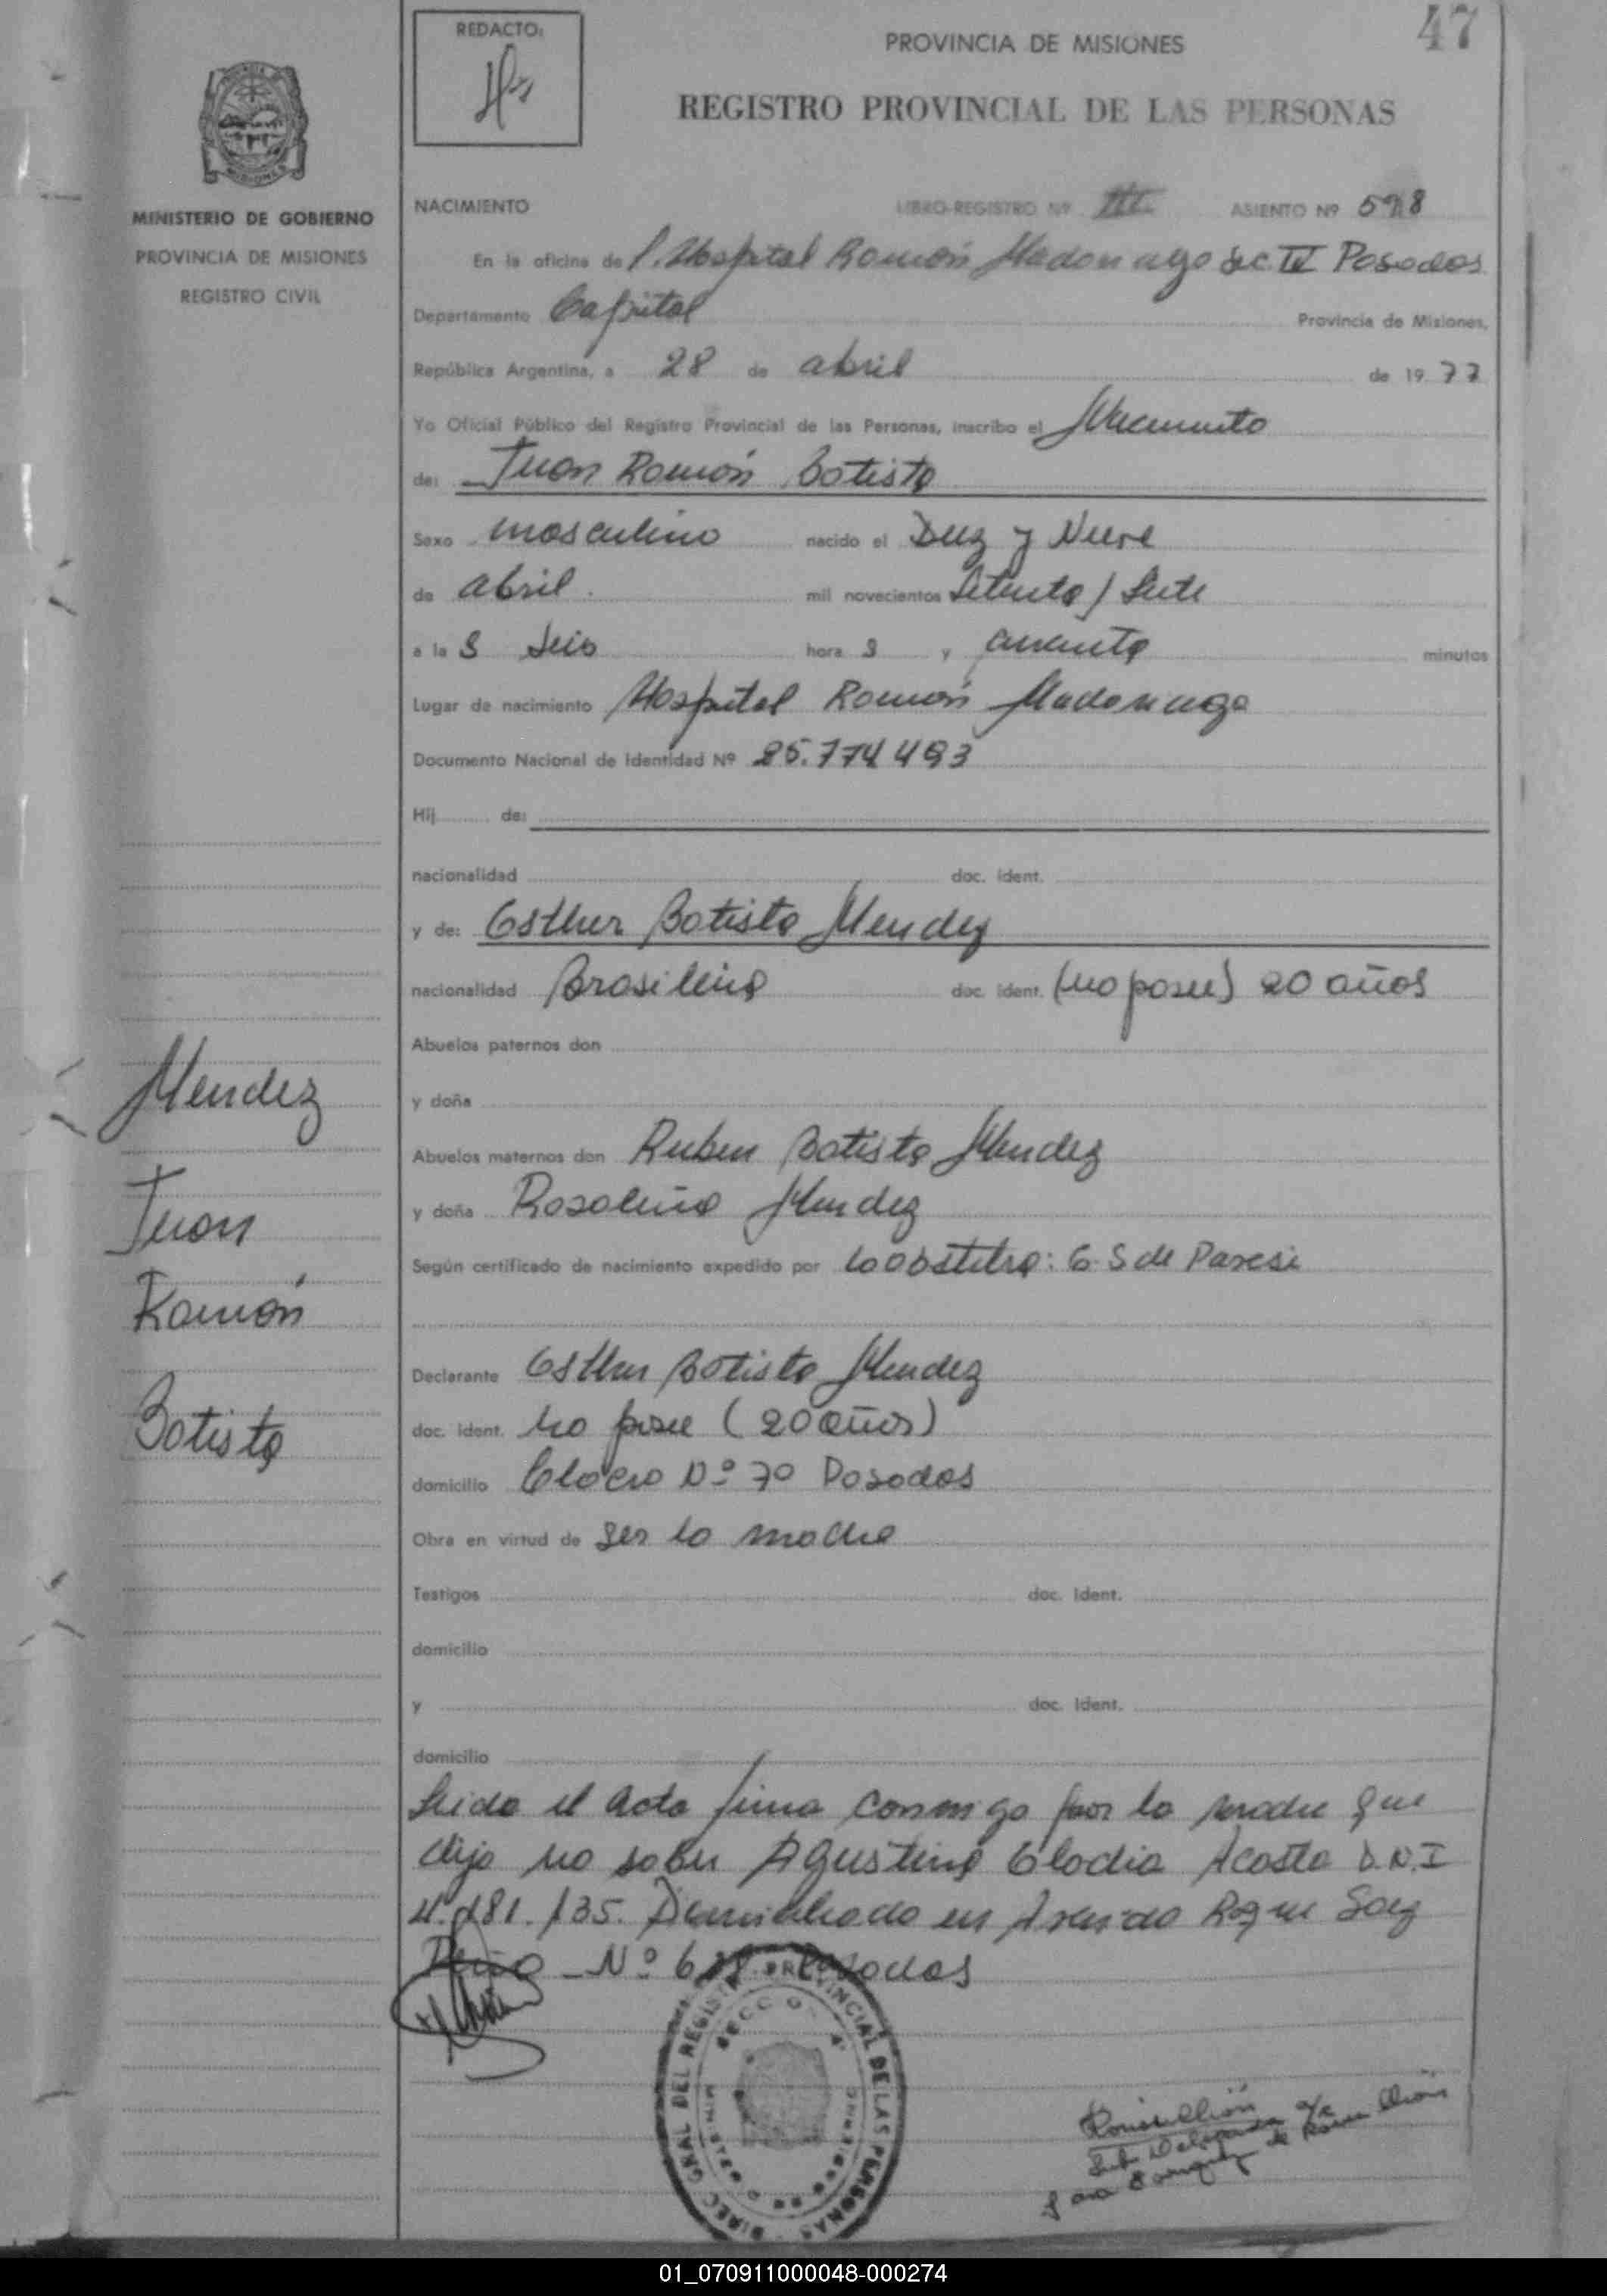 47
REDACTO:
PROVINCIA DE MISIONES
REGISTRO PROVINCIAL DE LAS PERSONAS
MINISTERIO DE GOBIERNO
PROVINCIA DE MISIONES
REGISTRO CIVIL
NACIMIENTO LIBRO-REGISTRO Nº III ASIENTO Nº 598
En la oficina del Hospital Ramón Madariaga Sec. IV Posadas
Departamento Capital Provincia de Misiones,
República Argentina, a 28 de abril de 1977
Yo Oficial Público del Registro Provincial de las Personas, inscribo el Nacimiento
de: Juan Ramón Batista
Sexo masculino nacido el Diez y Nueve
de abril. mil novecientos Setenta / Siete
a las Seis horas y cuarenta minutos
Lugar de nacimiento Hospital Ramón Madariaga
Documento Nacional de Identidad Nº 25.774 493
Hij de:
nacionalidad doc. ident.
y de: Esther Batista Mendez
nacionalidad Brasileña doc. ident. (no posee) 20 años
Abuelos paternos don
y doña
Abuelos maternos don Ruben Batista Mendez
y doña Rosalina Mendez
Según certificado de nacimiento expedido por la obstetra: G. S de Paresi
Declarante Esther Batista Mendez
doc. ident. no posee (20 años)
domicilio Nº 70 Posadas
Obra en virtud de ser la madre
Testigos doc. ident.
domicilio
y doc. ident.
domicilio
Leida el acta firma conmigo por la madre que
dijo no saber Agustina Clodia Acosta D.N.I
4.181.135. Domiciliada en Avenida Roque Saez
Peña - Nº Posadas
Mendez
Juan
Ramón
Batista
DIREC GRAL DEL REGISTRO PROVINCIAL DE LAS PERSONAS
SECCION 4ª
01_070911000048-000274